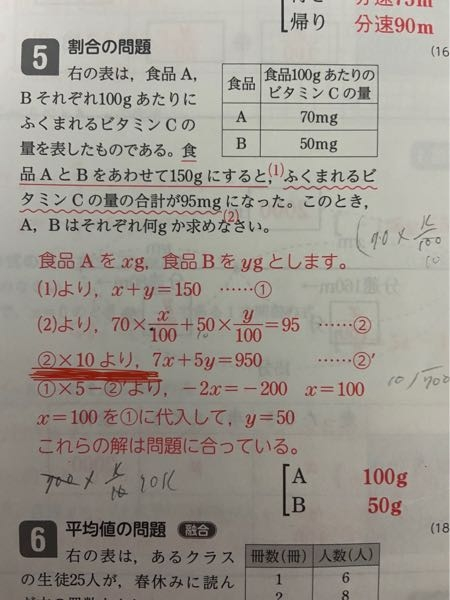 分速75m
帰り 分速90m
(16
5 割合の問題
右の表は，食品A，
Bそれぞれ100gあたりに
ふくまれるビタミンCの
量を表したものである。食
品AとBをあわせて150gにすると，(1)ふくまれるビ
タミンCの量の合計が95mgになった。(2)このとき，
A，Bはそれぞれ何gか求めなさい。
食品 食品100gあたりのビタミンCの量
A 70mg
B 50mg
食品Aをxg，食品Bをygとします。
(1)より，x+y=150 ……①
(2)より，70×x/100+50×y/100=95 ……②
②×10より，7x+5y=950 ……②′
①×5−②′より，−2x=−200 x=100
x=100を①に代入して，y=50
これらの解は問題に合っている。
A 100g
B 50g
(18
6 平均値の問題 融合
右の表は，あるクラス
の生徒25人が，春休みに読ん
冊数(冊) 人数(人)
1 6
2 8